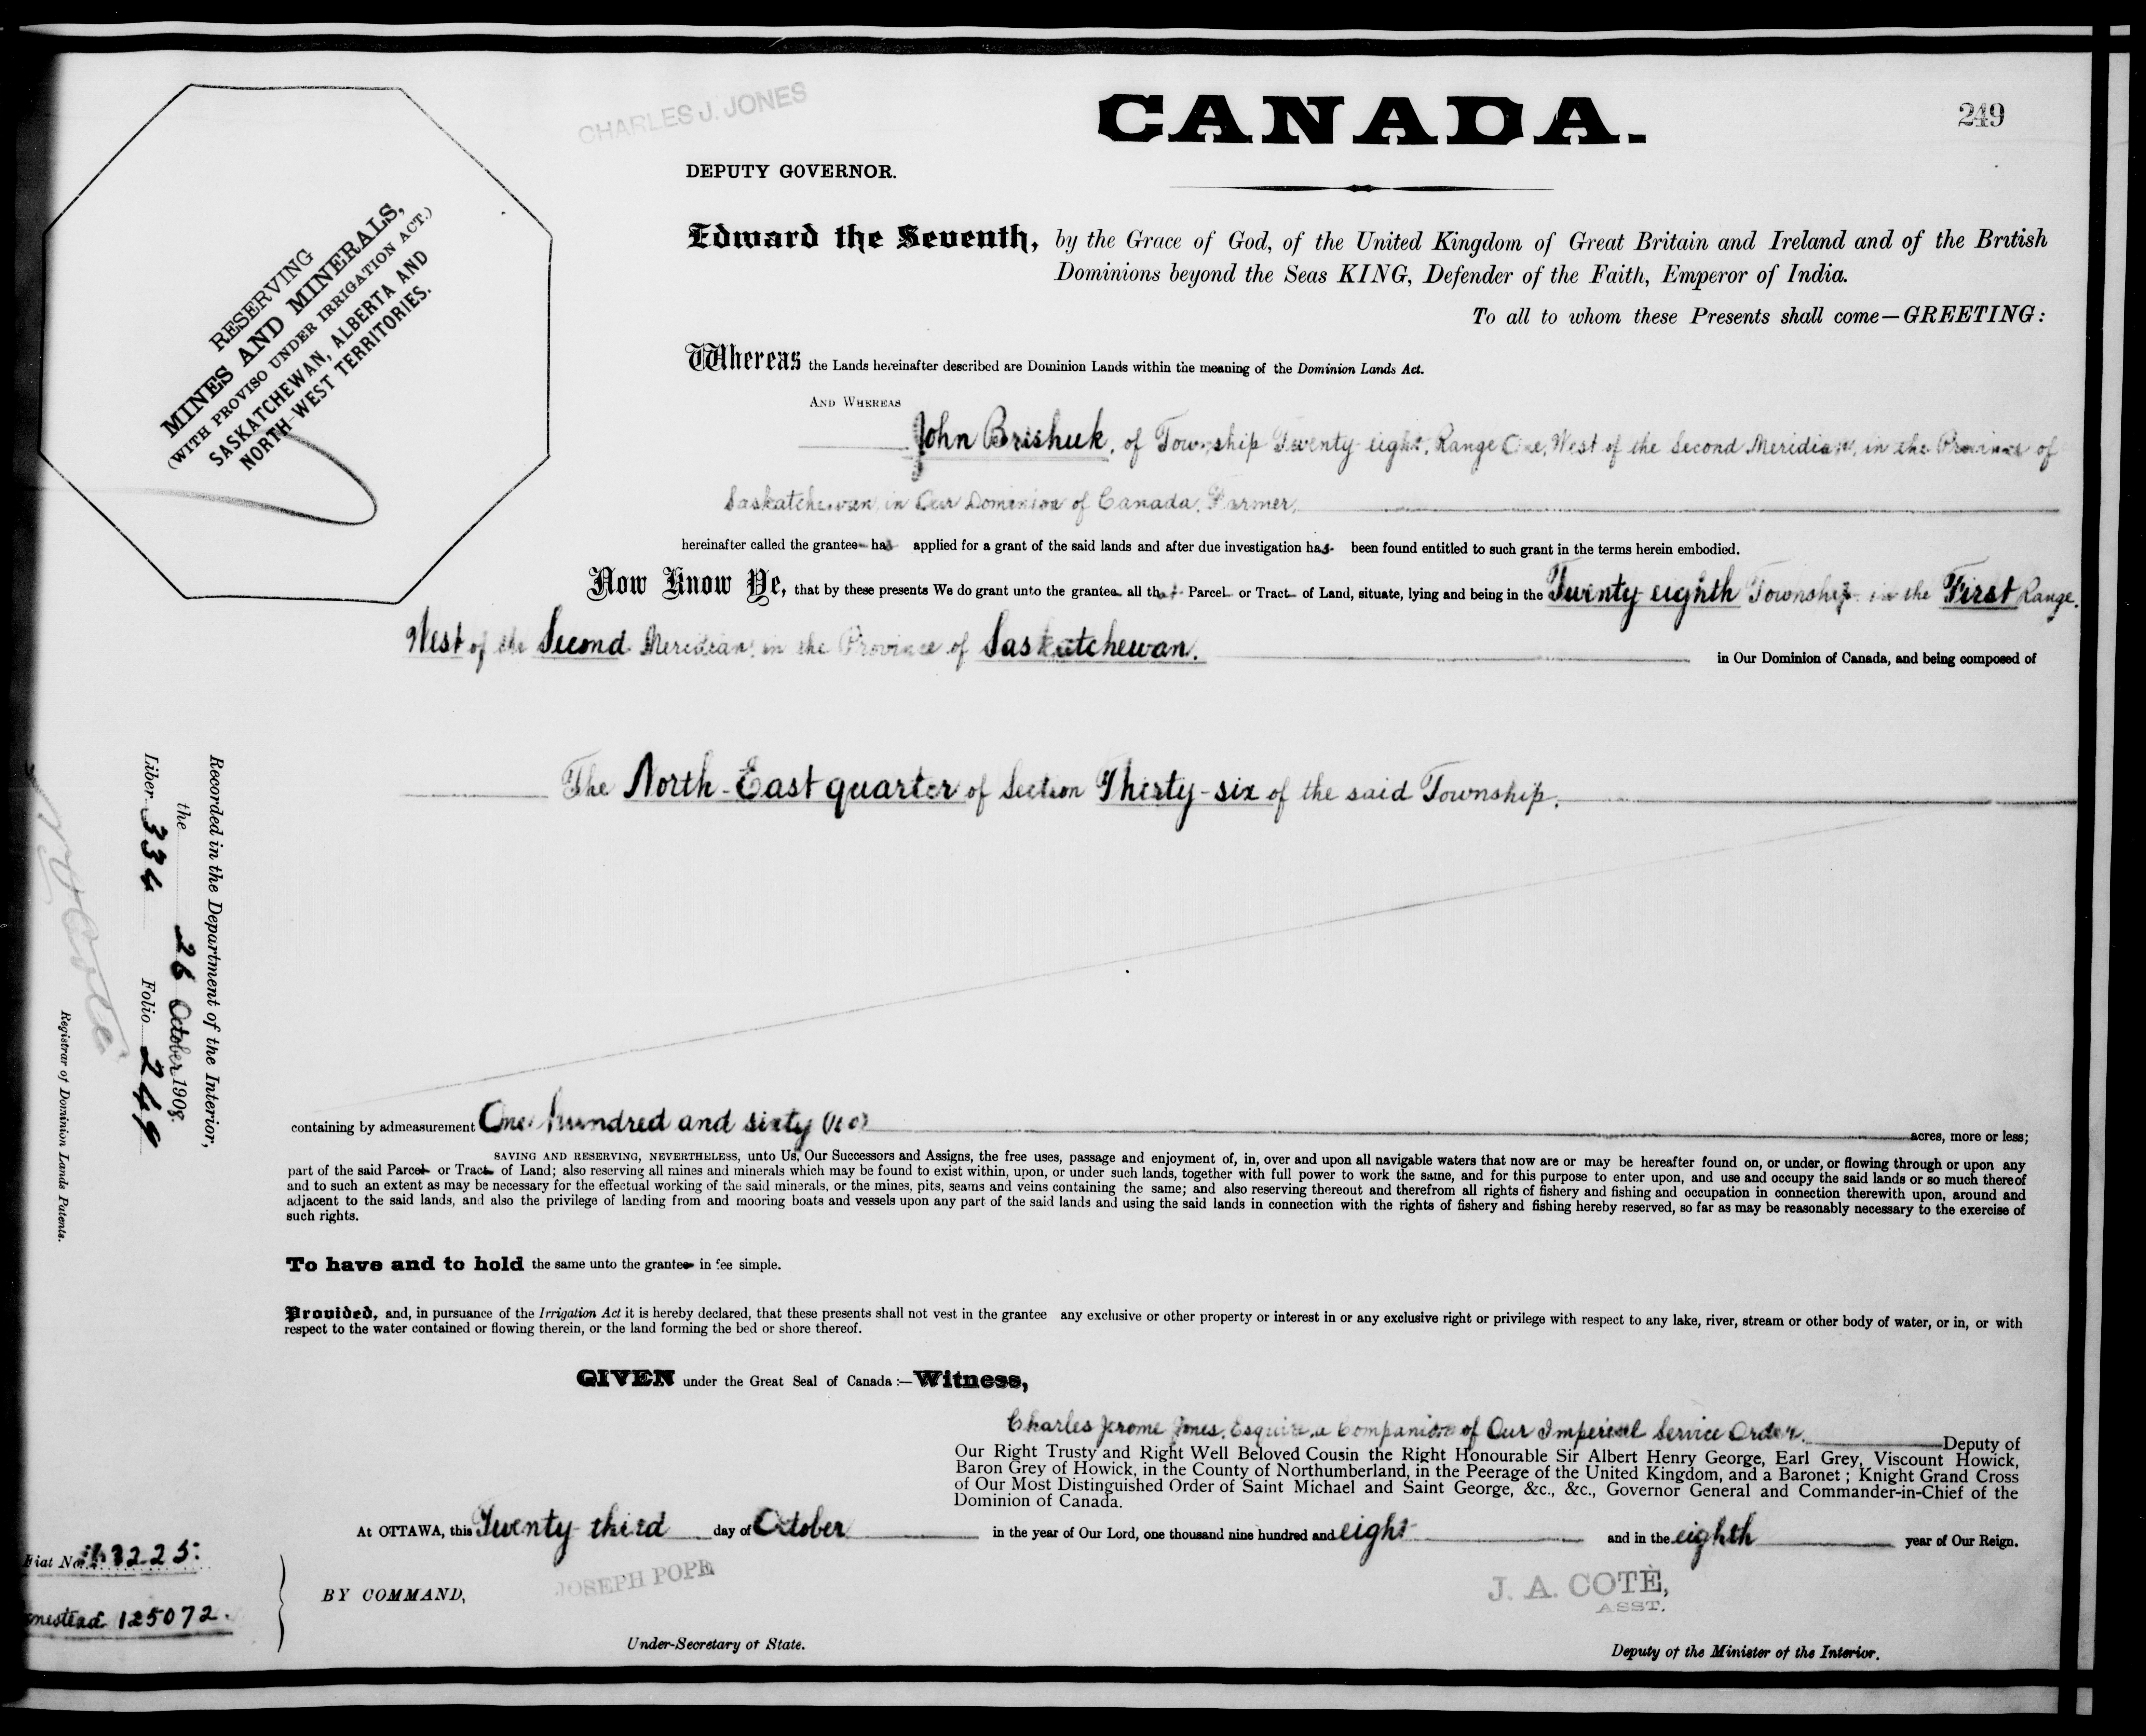 CHARLES J. JONES
CANADA.
249
DEPUTY GOVERNOR.
Edward the Seventh, by the Grace of God, of the United Kingdom of Great Britain and Ireland and of the British
Dominions beyond the Seas KING, Defender of the Faith, Emperor of India.
To all to whom these Presents shall come—GREETING:
RESERVING
MINES AND MINERALS,
(WITH PROVISO UNDER IRRIGATION ACT.)
SASKATCHEWAN, ALBERTA AND
NORTH-WEST TERRITORIES.
Whereas the Lands hereinafter described are Dominion Lands within the meaning of the Dominion Lands Act.
AND WHEREAS
John Brishuk, of Township Twenty-eight, Range One, West of the Second Meridian, in the Province of
Saskatchewan, in Our Dominion of Canada, Farmer,
hereinafter called the grantee has applied for a grant of the said lands and after due investigation has been found entitled to such grant in the terms herein embodied.
Now Know Ye, that by these presents We do grant unto the grantee all that Parcel or Tract of Land, situate, lying and being in the Twenty-eighth Township in the First Range,
West of the Second Meridian, in the Province of Saskatchewan. in Our Dominion of Canada, and being composed of
The North-East quarter of Section Thirty-six of the said Township.
containing by admeasurement One hundred and sixty (160) acres, more or less;
SAVING AND RESERVING, NEVERTHELESS, unto Us, Our Successors and Assigns, the free uses, passage and enjoyment of, in, over and upon all navigable waters that now are or may be hereafter found on, or under, or flowing through or upon any
part of the said Parcel or Tract of Land; also reserving all mines and minerals which may be found to exist within, upon, or under such lands, together with full power to work the same, and for this purpose to enter upon, and use and occupy the said lands or so much thereof
and to such an extent as may be necessary for the effectual working of the said minerals, or the mines, pits, seams and veins containing the same; and also reserving thereout and therefrom all rights of fishery and fishing and occupation in connection therewith upon, around and
adjacent to the said lands, and also the privilege of landing from and mooring boats and vessels upon any part of the said lands and using the said lands in connection with the rights of fishery and fishing hereby reserved, so far as may be reasonably necessary to the exercise of
such rights.
To have and to hold the same unto the grantee in fee simple.
Provided, and, in pursuance of the Irrigation Act it is hereby declared, that these presents shall not vest in the grantee any exclusive or other property or interest in or any exclusive right or privilege with respect to any lake, river, stream or other body of water, or in, or with
respect to the water contained or flowing therein, or the land forming the bed or shore thereof.
GIVEN under the Great Seal of Canada:—Witness,
Charles Jerome Jones, Esquire, a Companion of Our Imperial Service Order, Deputy of
Our Right Trusty and Right Well Beloved Cousin the Right Honourable Sir Albert Henry George, Earl Grey, Viscount Howick,
Baron Grey of Howick, in the County of Northumberland, in the Peerage of the United Kingdom, and a Baronet; Knight Grand Cross
of Our Most Distinguished Order of Saint Michael and Saint George, &c., &c., Governor General and Commander-in-Chief of the
Dominion of Canada.
At OTTAWA, this Twenty-third day of October in the year of Our Lord, one thousand nine hundred and eight and in the eighth year of Our Reign.
BY COMMAND,
JOSEPH POPE
Under-Secretary of State.
J. A. COTÉ,
ASST.
Deputy of the Minister of the Interior.
Recorded in the Department of the Interior,
the 26 October 1908.
Liber 334 Folio 249
Registrar of Dominion Lands Patents.
Fiat No.
mestead 125072.